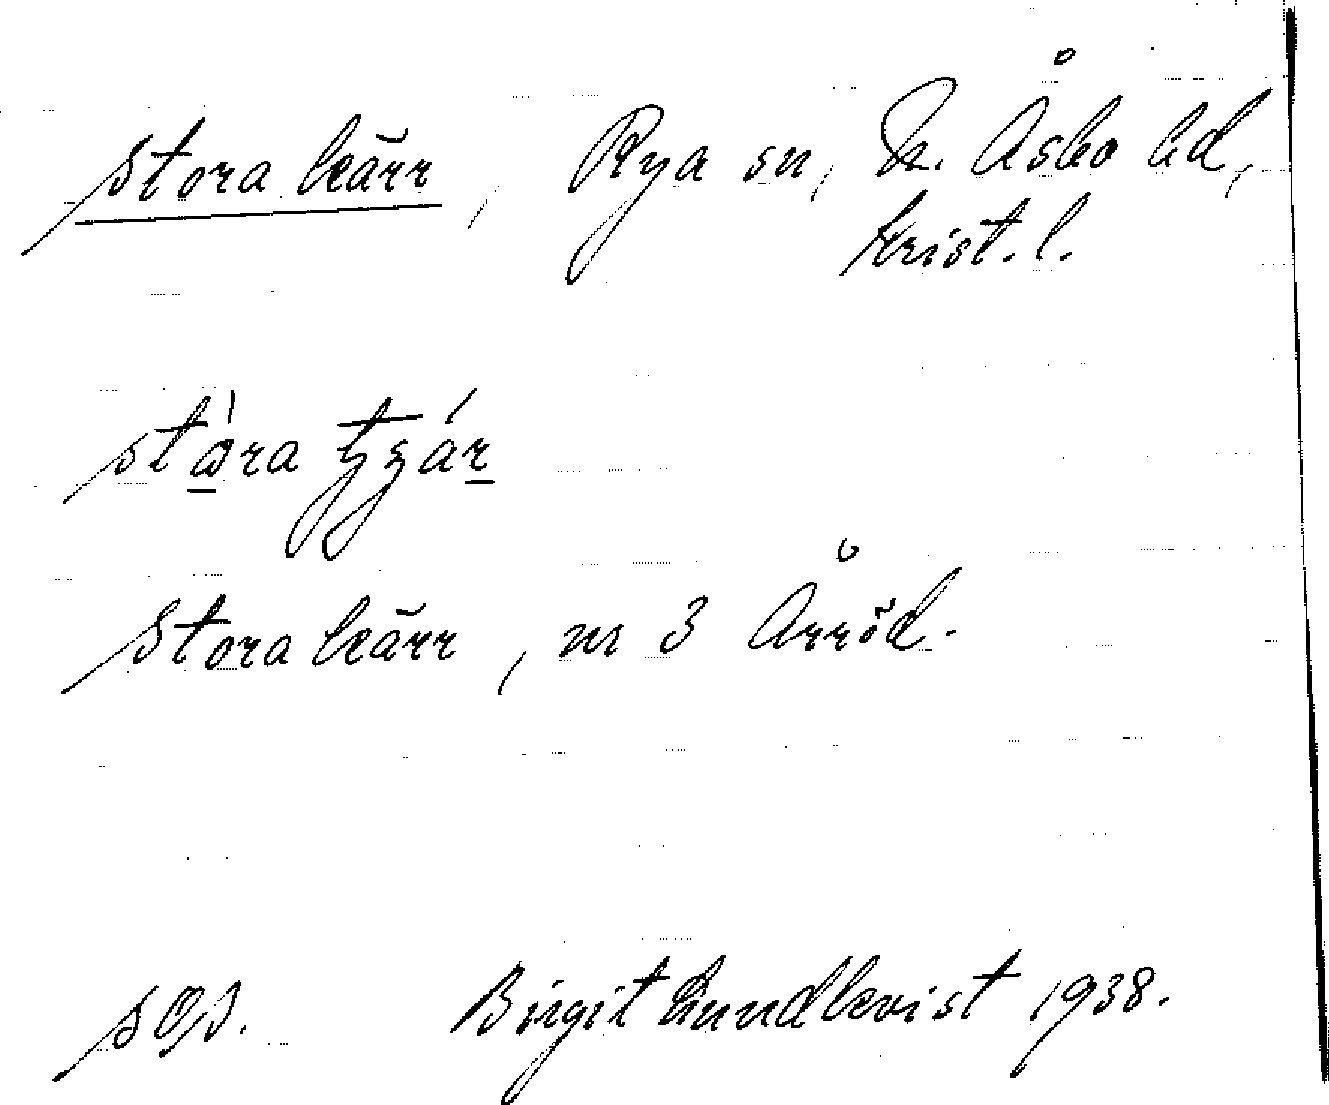 Stora kärr, Rya sn, N. Åsbo hd,
Krist. l.
Stora kärr, nr 3 Årröd.
Birgit Lundkvist 1938.